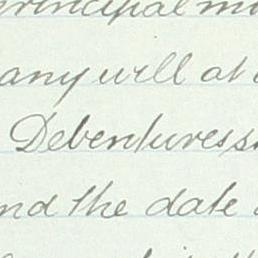 principal m
any will at a
Debentures s
and the date